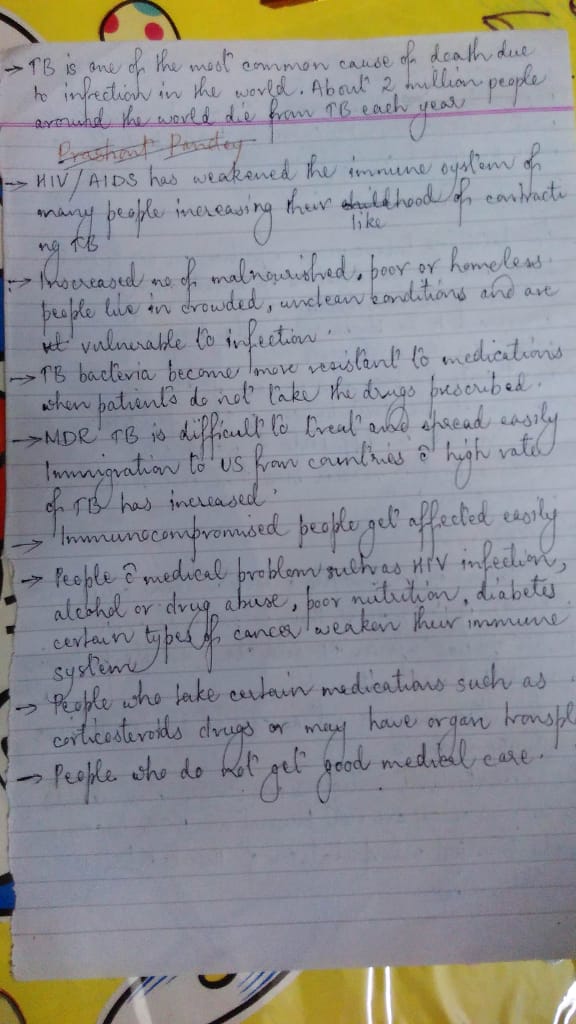 → TB is one of the most common cause of death due
to infection in the world. About 2 million people
around the world die from TB each year
Prashant Pandey
→ HIV/AIDS has weakened the immune system of
many people increasing their childhood of contracti
like
ng TB
→ Inscreased no of malnourished, poor or homeless
people live in crowded, unclean conditions and are
vulnerable to infection.
→ TB bacteria become more resistant to medications
when patients do not take the drugs prescribed.
→ MDR TB is difficult to treat and spread easily
Immigration to US from countries c̄ high rate
of TB has increased.
→ Immunocompromised people get affected easily
→ People c̄ medical problem such as HIV infection,
alcohol or drug abuse, poor nutrition, diabetes
certain types of cancer weaken their immune
system
→ People who take certain medications such as
corticosteroids drugs or may have organ transpl
→ People who do not get good medical care.